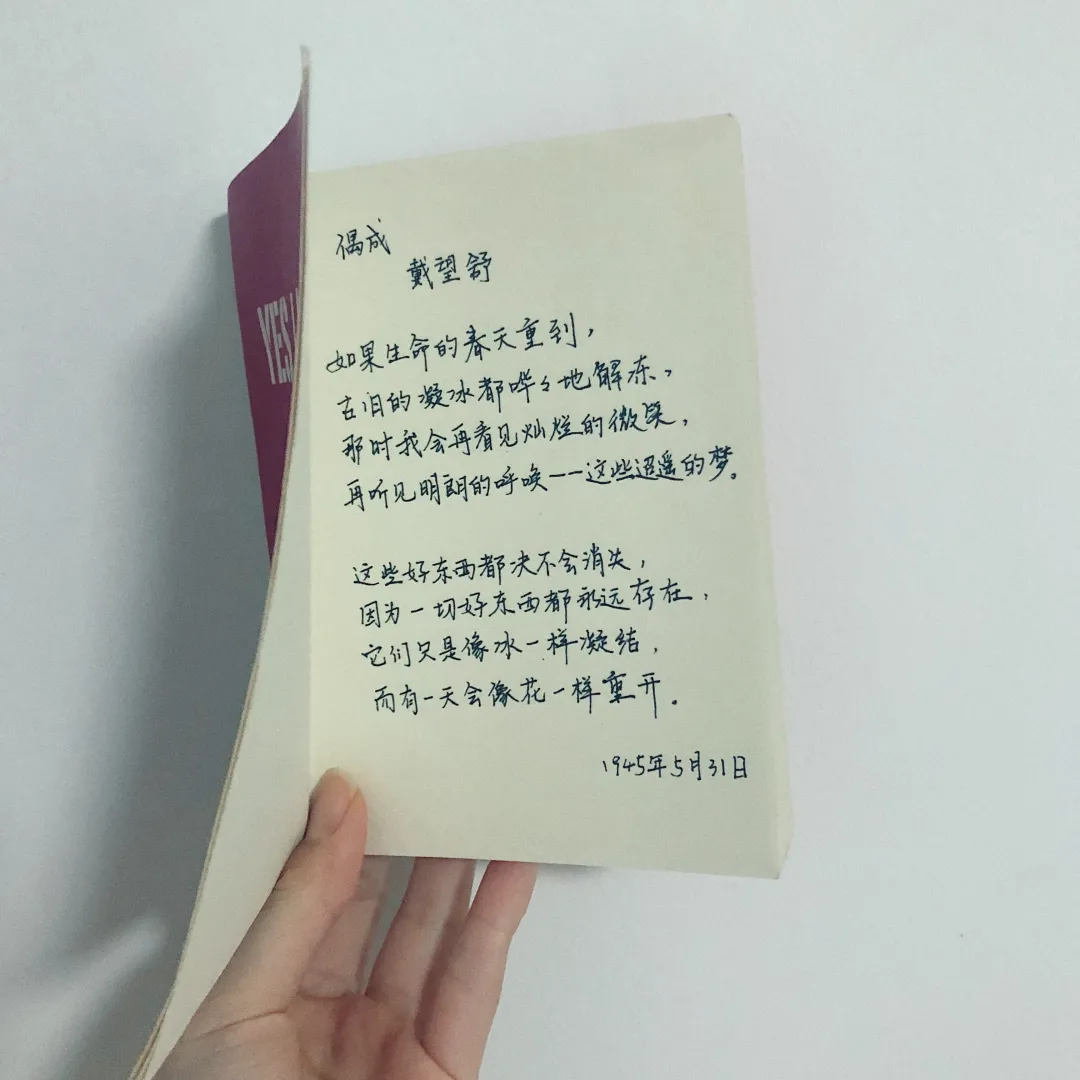 偶成
戴望舒
如果生命的春天重到，
古旧的凝冰都哗々地解冻、
那时我会再看见灿烂的微笑，
再听见明朗的呼唤——这些迢遥的梦。
这些好东西都决不会消失，
因为一切好东西都永远存在，
它们只是像冰一样凝结，
而有一天会像花一样重开。
1945年5月31日
YES